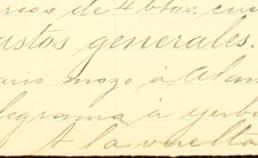 rcos de 4 btos. cue
astos generales.
ario mozo á Alam
legrama á yerba
A la vuelta